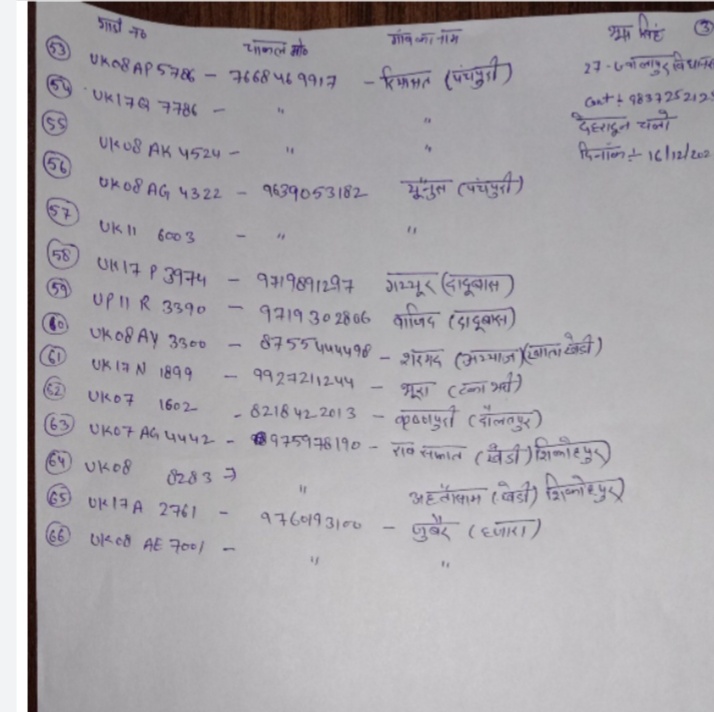 गाडी नं० चालक मो० गांव का नाम भूरा सिंह ③
53 UK08AP5786 - 7668469917 - रियासत (पंचपुरी) 27-ज्वालापुर विधानस
54 UK17Q 7786 - " " Cont ÷ 983725212
55 UK08 AK 4524 - " " देहरादून चलो
56 UK08 AG 4322 - 9639053182 यूनुस (पंचपुरी) दिनांक ÷ 16/12/202
57 UK11 6003 - " "
58 UK17 P 3974 - 9719891297 गय्यूर (दादूबास)
59 UP11 R 3390 - 9719302806 वाजिद (दादूबास)
60 UK08AY 3300 - 8755444498 - शरमद (खाताखेडी)
61 UK17N 1899 - 9927211244 - भूरा
62 UK07 1602 - 8218422013 - कृष्णपुरी (दौलतपुर)
63 UK07 AG4442 - 8975978190 - राव सफात (खेडी) शिकोहपुर
64 UK08 8283 " अहतेसाम (खेडी) शिकोहपुर
65 UK17A 2761 - 9760193100 - जुबैर (हजारा)
66 UK08 AE 7001 - " "